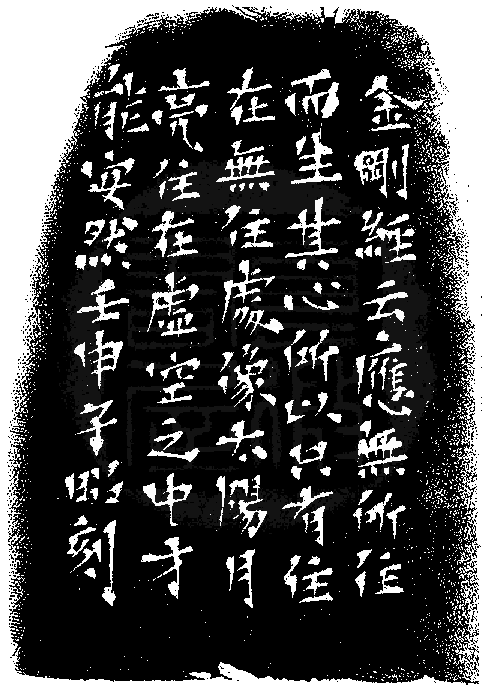 金剛經云應無所住
而生其心所以只有住
在無住處像太陽月
亮住在虛空之中才
能安然壬申子刻